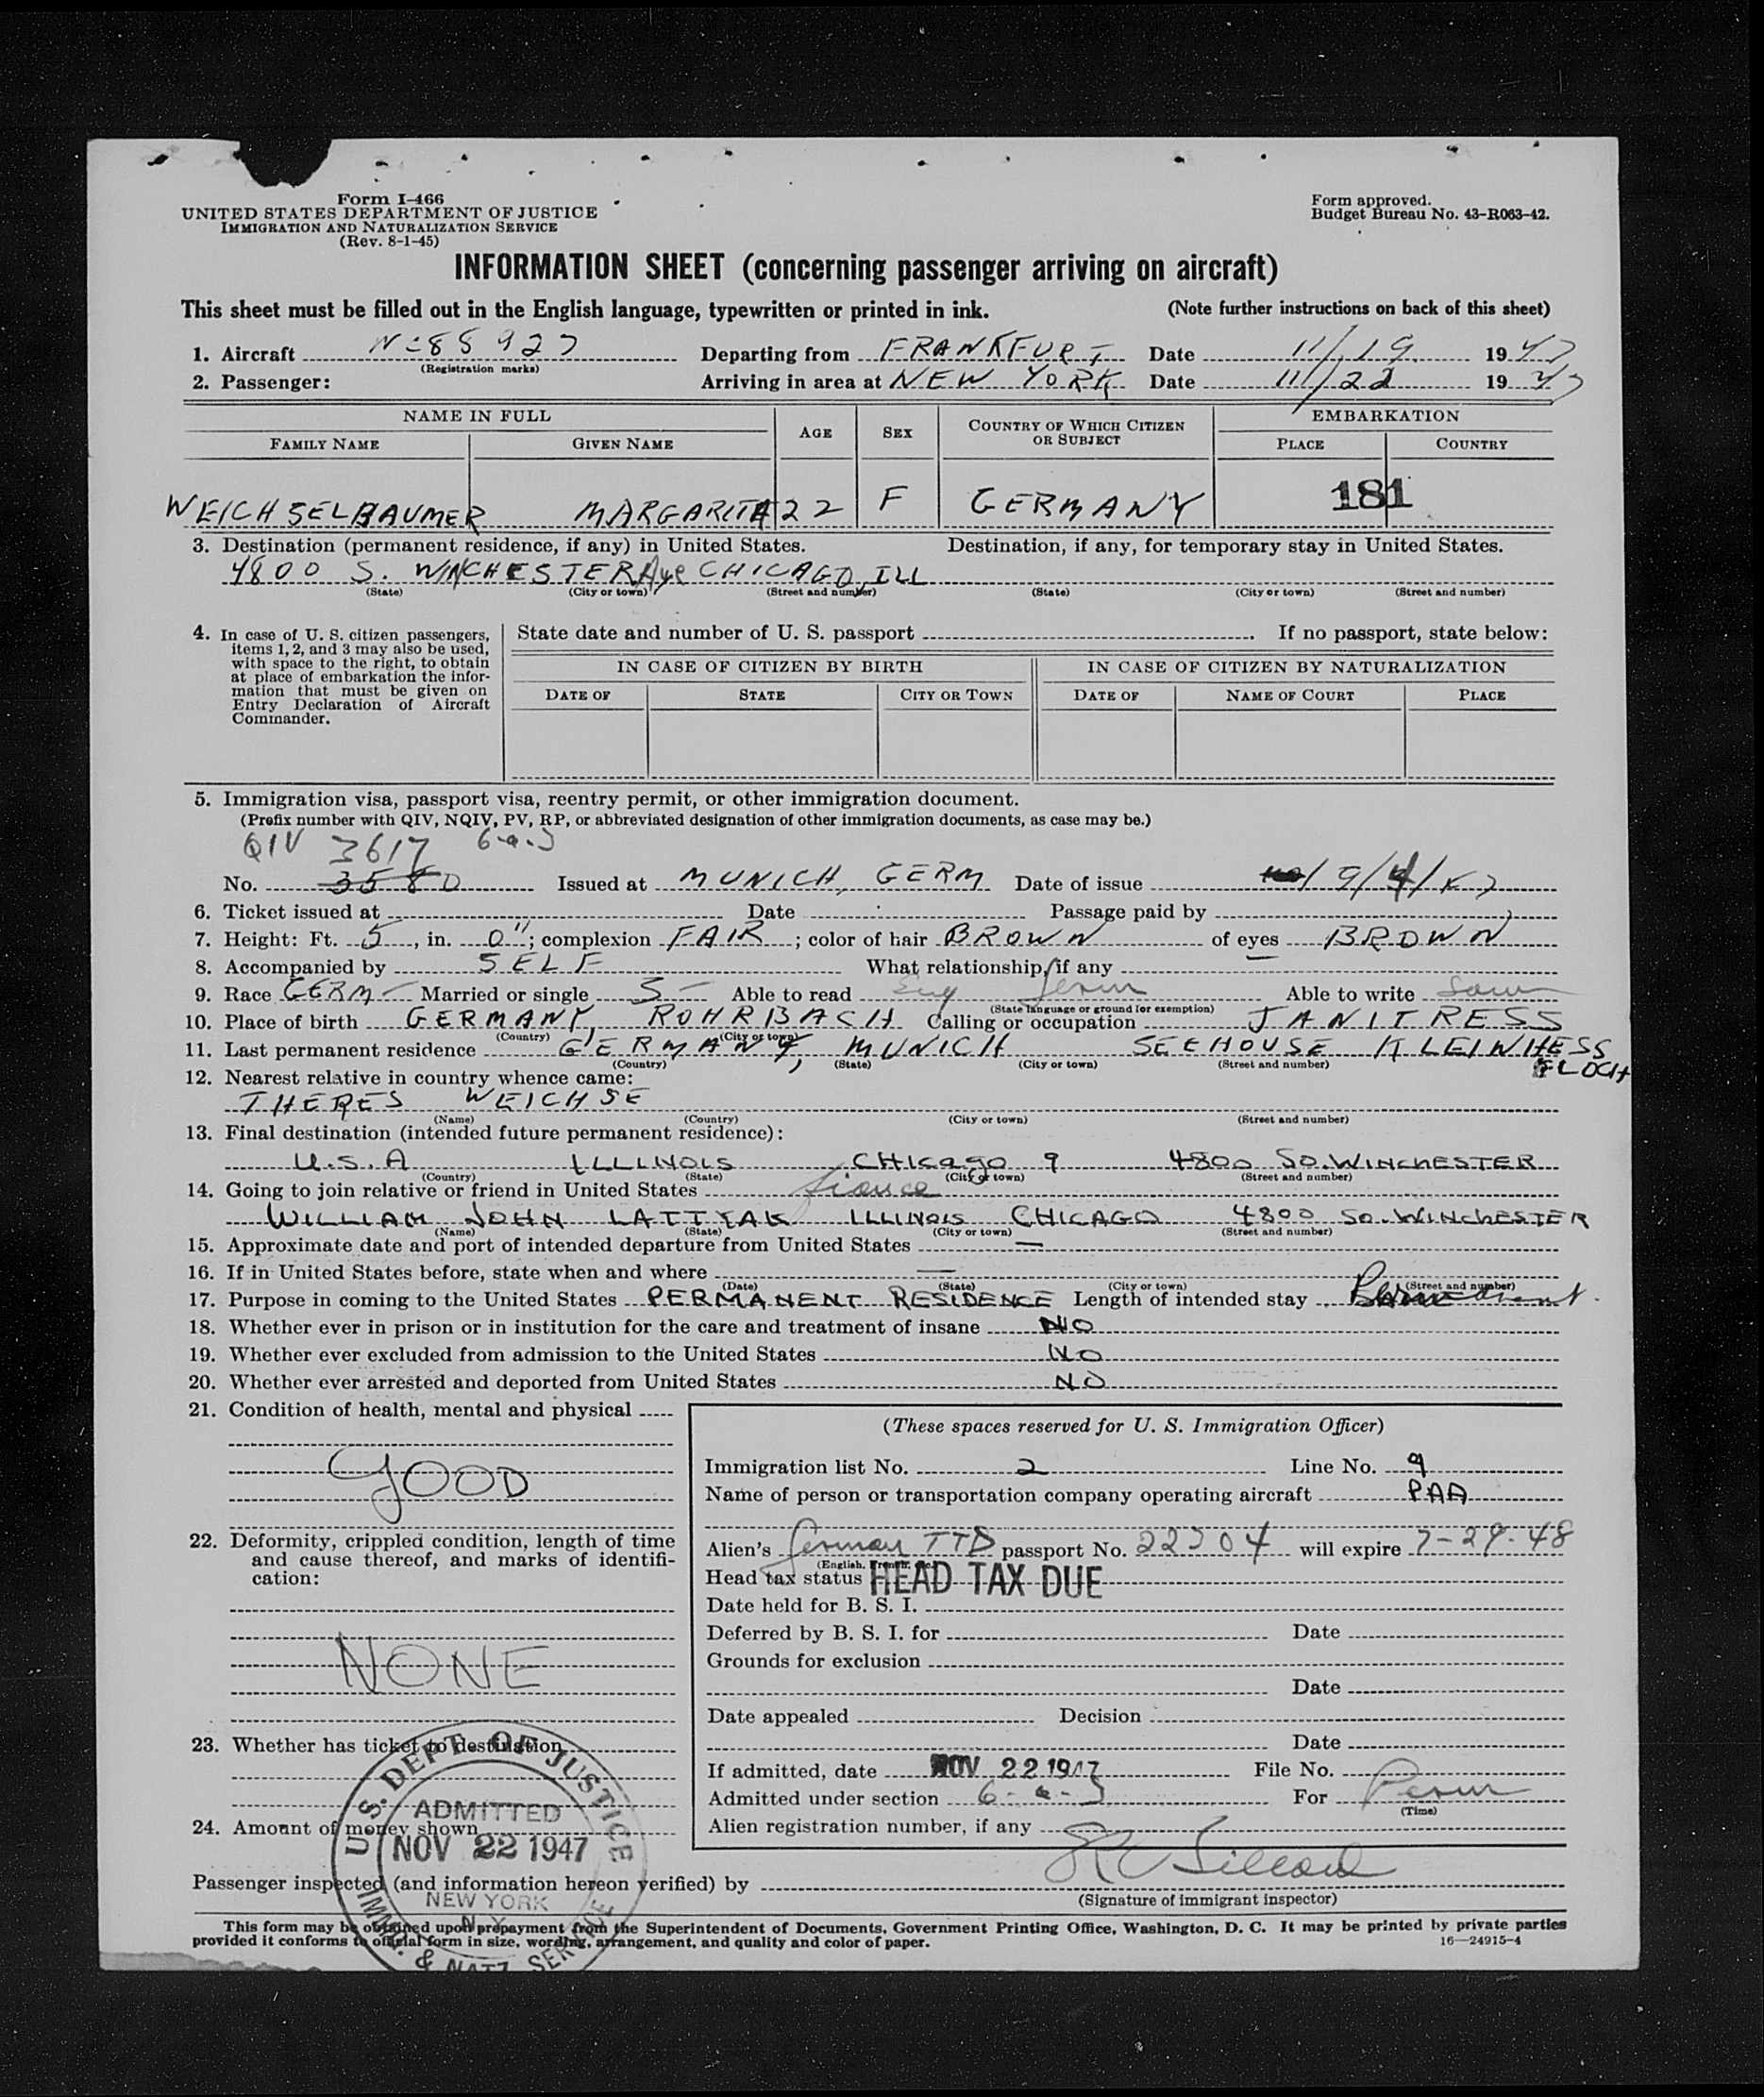 Form I-466
UNITED STATES DEPARTMENT OF JUSTICE
IMMIGRATION AND NATURALIZATION SERVICE
(Rev. 8-1-45)
Form approved.
Budget Bureau No. 43-R063-42.
INFORMATION SHEET (concerning passenger arriving on aircraft)
This sheet must be filled out in the English language, typewritten or printed in ink. (Note further instructions on back of this sheet)
1. Aircraft Departing from FRANKFURT Date 11/19 1947
(Registration marks)
2. Passenger: Arriving in area at NEW YORK Date 11/22 1947
NAME IN FULL AGE SEX COUNTRY OF WHICH CITIZEN OR SUBJECT EMBARKATION
FAMILY NAME GIVEN NAME PLACE COUNTRY
WEICHSELBAUMER MARGARITA 22 F GERMANY 181
3. Destination (permanent residence, if any) in United States. Destination, if any, for temporary stay in United States.
4800 S. WINCHESTER Ave CHICAGO, ILL
(State) (City or town) (Street and number) (State) (City or town) (Street and number)
4. In case of U. S. citizen passengers, items 1, 2, and 3 may also be used, with space to the right, to obtain at place of embarkation the information that must be given on Entry Declaration of Aircraft Commander.
State date and number of U. S. passport . If no passport, state below:
IN CASE OF CITIZEN BY BIRTH IN CASE OF CITIZEN BY NATURALIZATION
DATE OF STATE CITY OR TOWN DATE OF NAME OF COURT PLACE
5. Immigration visa, passport visa, reentry permit, or other immigration document.
(Prefix number with QIV, NQIV, PV, RP, or abbreviated designation of other immigration documents, as case may be.)
QIV 3617 6-a-3
No. 3580 Issued at MUNICH, GERM Date of issue 9/4/47
6. Ticket issued at Date Passage paid by
7. Height: Ft. 5, in. 0"; complexion FAIR; color of hair BROWN of eyes BROWN
8. Accompanied by SELF What relationship, if any —
9. Race GERM — Married or single S — Able to read Eng Germ Able to write Same
(State language or ground for exemption)
10. Place of birth GERMANY, ROHRBACH Calling or occupation JANITRESS
(Country) (City or town)
11. Last permanent residence GERMANY, MUNICH SEEHOUSE KLEINHESS
(Country) (State) (City or town) (Street and number)
12. Nearest relative in country whence came:
THERES WEICHSE
(Name) (Country) (City or town) (Street and number)
13. Final destination (intended future permanent residence):
U.S.A ILLINOIS CHICAGO 9 4800 SO. WINCHESTER
(Country) (State) (City or town) (Street and number)
14. Going to join relative or friend in United States fiance
WILLIAM JOHN LATTYAK ILLINOIS CHICAGO 4800 SO. WINCHESTER
(Name) (State) (City or town) (Street and number)
15. Approximate date and port of intended departure from United States —
16. If in United States before, state when and where —
(Date) (State) (City or town) (Street and number)
17. Purpose in coming to the United States PERMANENT RESIDENCE Length of intended stay Permanent.
18. Whether ever in prison or in institution for the care and treatment of insane NO
19. Whether ever excluded from admission to the United States NO
20. Whether ever arrested and deported from United States NO
21. Condition of health, mental and physical
GOOD
22. Deformity, crippled condition, length of time and cause thereof, and marks of identification:
NONE
23. Whether has ticket to destination
24. Amount of money shown
(These spaces reserved for U. S. Immigration Officer)
Immigration list No. 2 Line No. 9
Name of person or transportation company operating aircraft PAA
Alien's German TTD passport No. 22704 will expire 7-29-48
(English, French, etc.)
Head tax status HEAD TAX DUE
Date held for B. S. I.
Deferred by B. S. I. for Date
Grounds for exclusion
Date
Date appealed Decision
Date
If admitted, date NOV 22 1947 File No.
Admitted under section 6-a-3 For Perm
(Time)
Alien registration number, if any
U. S. DEPT. OF JUSTICE
ADMITTED
NOV 22 1947
NEW YORK
N.Y.
IMM. & NATZ. SERVICE
Passenger inspected (and information hereon verified) by
(Signature of immigrant inspector)
This form may be obtained upon prepayment from the Superintendent of Documents, Government Printing Office, Washington, D. C. It may be printed by private parties
provided it conforms to official form in size, wording, arrangement, and quality and color of paper. 16—24915-4